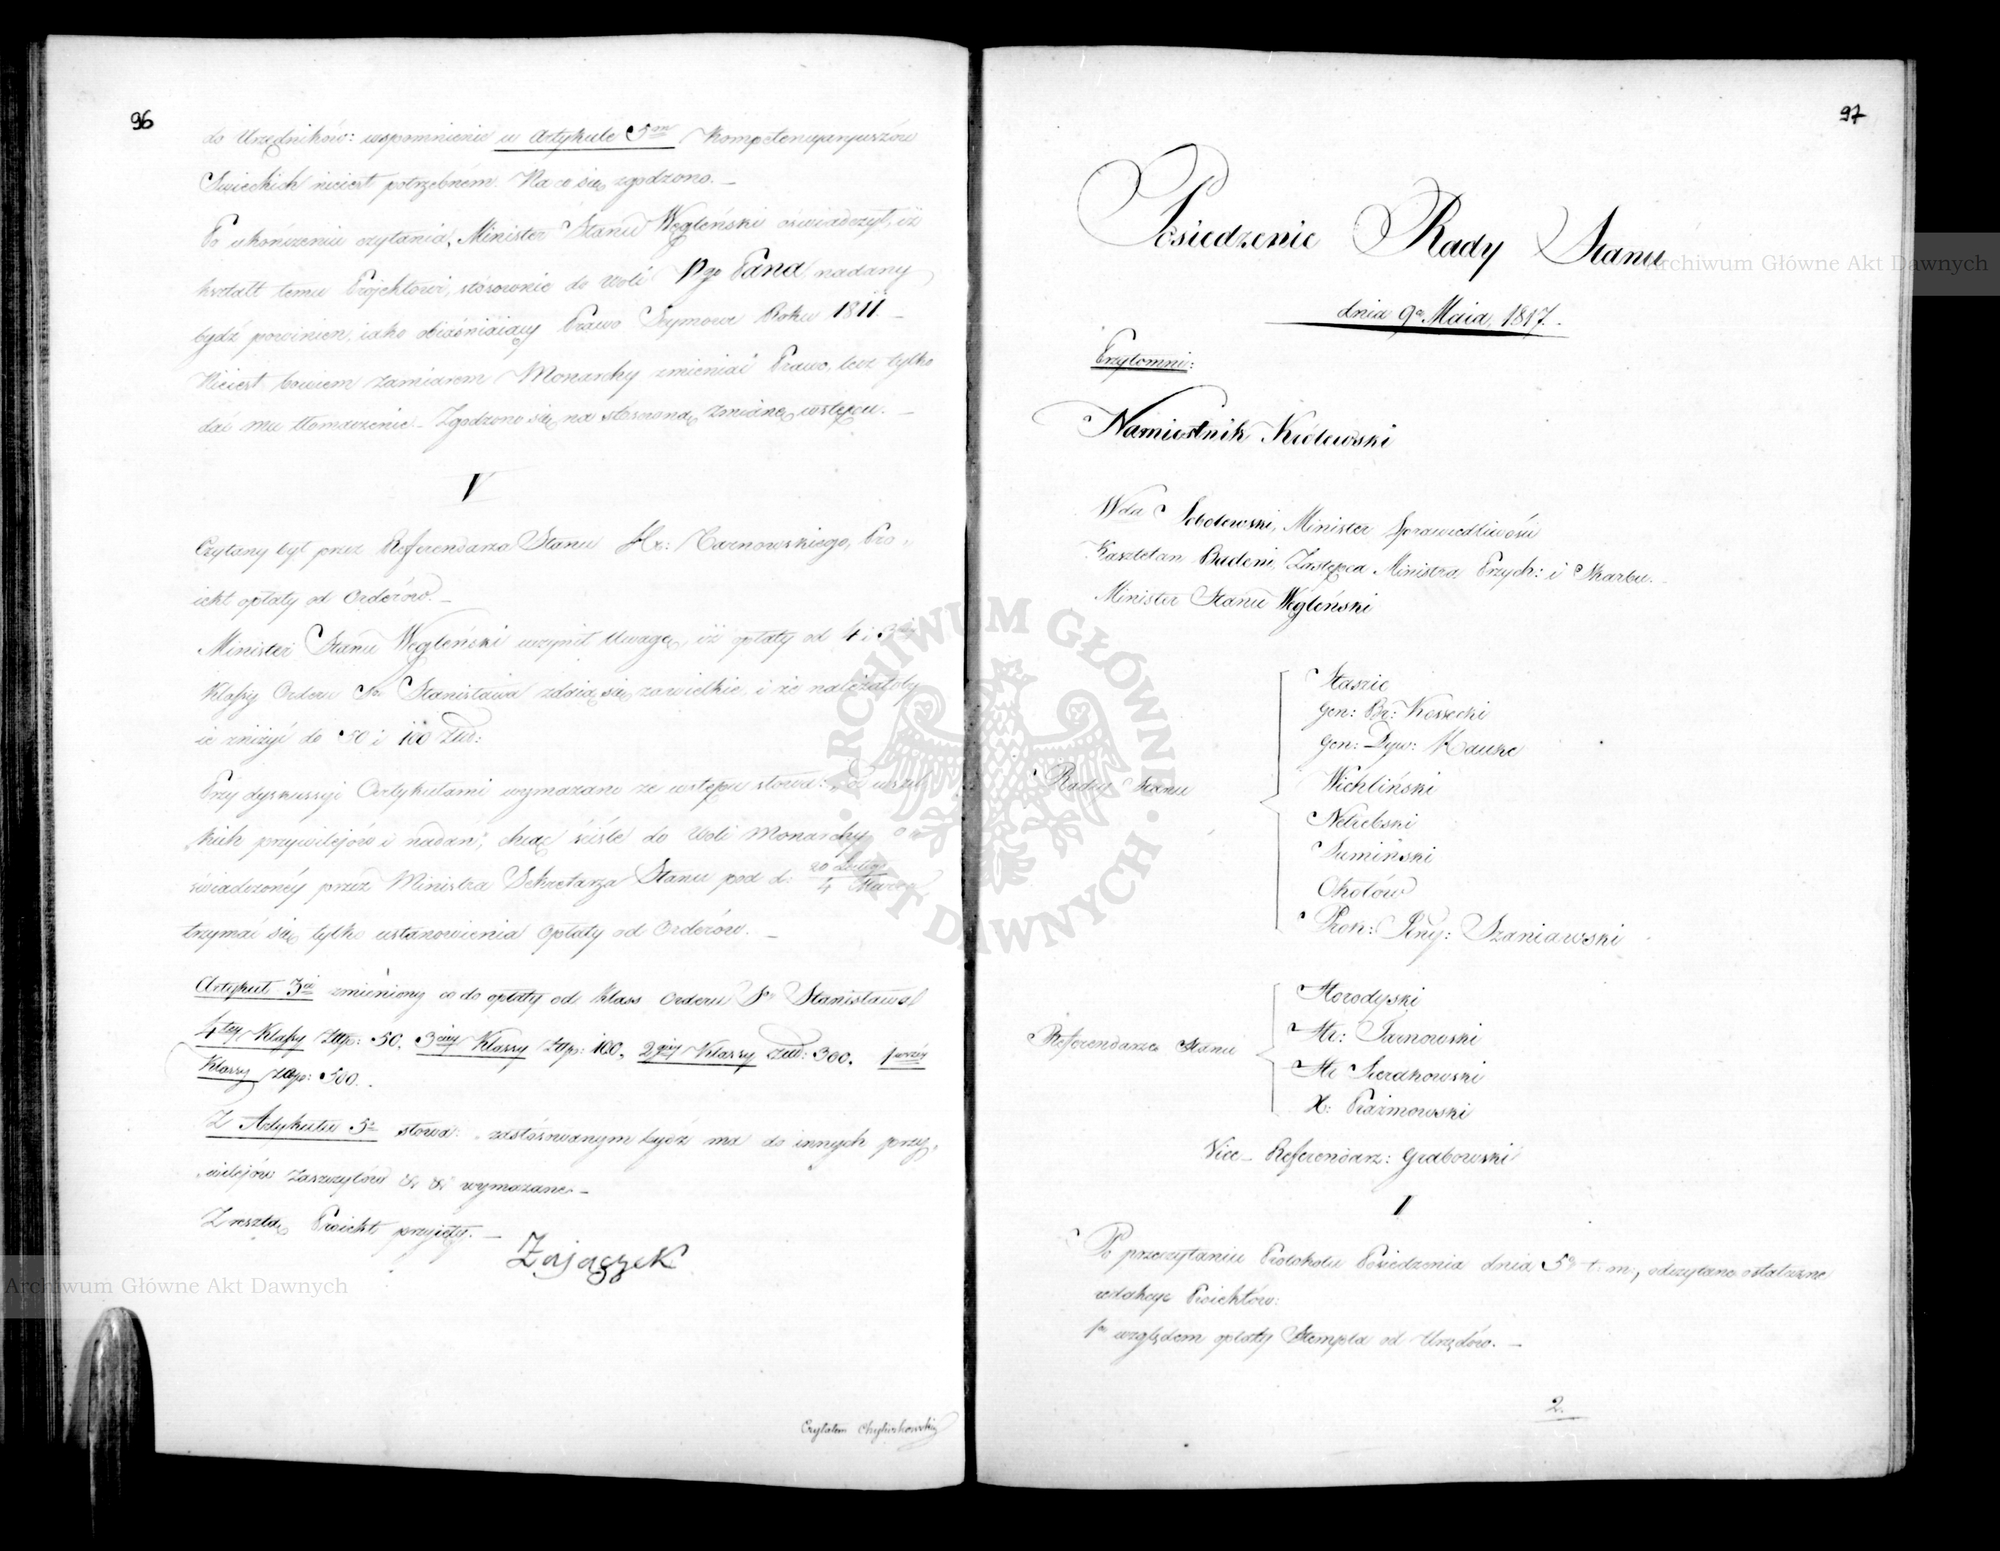 96
do Urzędników: wspomnienie w Artykule 5m Kompetencyaryuszów
Swieckich nieiest potrzebném. Na co się zgodzono. –
Po ukończeniu czytania, Minister Stanu Węgleński oświadczył, iż
kształt temu Projektowi, stósownie do woli Pana nadany
bydź powinien, iako obiaśniaiący Prawo Seymowe Roku 1811 –
Nieiest bowiem zamiarem Monarchy zmieniać Prawo, lecz tylko
dać mu tłomaczenie – Zgodzono się na stósowną zmianę wstępu. –
V
Czytany był przez Referendarza Stanu Hr: Tarnowskiego, Pro„
iekt opłaty od Orderów. –
Minister Stanu Węgleński uczynił Uwagę, iż opłaty od 4 i 3ciéy
Klassy Orderu Sgo Stanisława zdaią się zawielkie, i że należałoby
ie zniżyć do 50 i 100 Złł:
Przy dyskussyi Artykułami wymazano ze wstępu słowa: „Od wszel
„kich przywilejów i nadań", chcąc ściśle do Woli Monarchy o„
świadczonéy przéz Ministra Sekretarza Stanu pod d: 20 Lutego / 4 Marca
trzymać się tylko ustanowienia Opłaty od Orderów. –
Artykuł 3ci zmieniony co do opłaty od Klass Orderu Sgo Stanisława
4tey Klassy Złtp: 50. 3ciéy Klassy Złtp: 100, 2giéy Klassy Złł: 300. 1wszéy
Klassy Złtp: 500.
Z Artykułu 5o słowa: zastósowanym bydź ma do innych przy„
„wilejów Zaszczytów & & wymazane. –
Zresztą Proiekt przyięty. –
Zajączek
Czytałem Chyliczkowski
97
Posiedzenie Rady Stanu
dnia 9o Maia, 1817.
Przytomni:
Namiestnik Królewski
Wda Sobolewski, Minister Sprawiedliwości
Kasztelan Badeni, Zastępca Ministra Przych: i Skarbu. –
Minister Stanu Węgleński
Radcy Stanu
Staszic
Gen: Br: Kossecki
Gen: Dyw: Hauke
Wichliński
Nelrebski
Sumiński
Okołów
Prok: Jlny: Szaniawski
Referendarze Stanu
Horodyski
Hr: Tarnowski
Hr Sierakowski
X: Prażmowski
Vice – Referendarz: Grabowski
I
Po przeczytaniu Protokołu Posiedzenia dnia 5o t: m:, odczytano ostateczne
redakcye Proiektów:
1o względem opłaty Stempla od Urzędów. –
2.
Archiwum Główne Akt Dawnych
Archiwum Główne Akt Dawnych
ARCHIWUM GŁÓWNE · AKT DAWNYCH ·